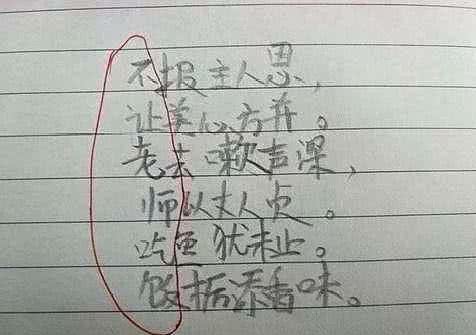 不报主人恩,
让美心方弃。
老去嗽声深,
师以丈人贞。
吃色犹未止。
饭后添香味。